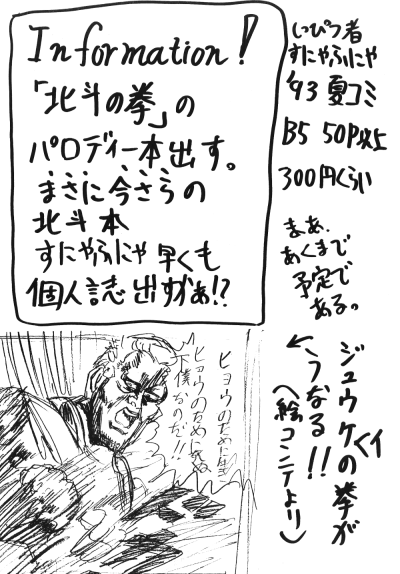 Information!
「北斗の拳」の
パロディー本出す。
まさに今さらの
北斗本
すにゃふにゃ早くも
個人誌出すかぁ!?
しっぴつ者
すにゃふにゃ
'93 夏コミ
B5 50P以上
300円くらい
まあ、
あくまで
予定で
ある。
ジュウケイの拳が
うなる!!
(絵コンテより)
ヒョウのために生き
ヒョウのために死ぬ
下僕なのだ!!